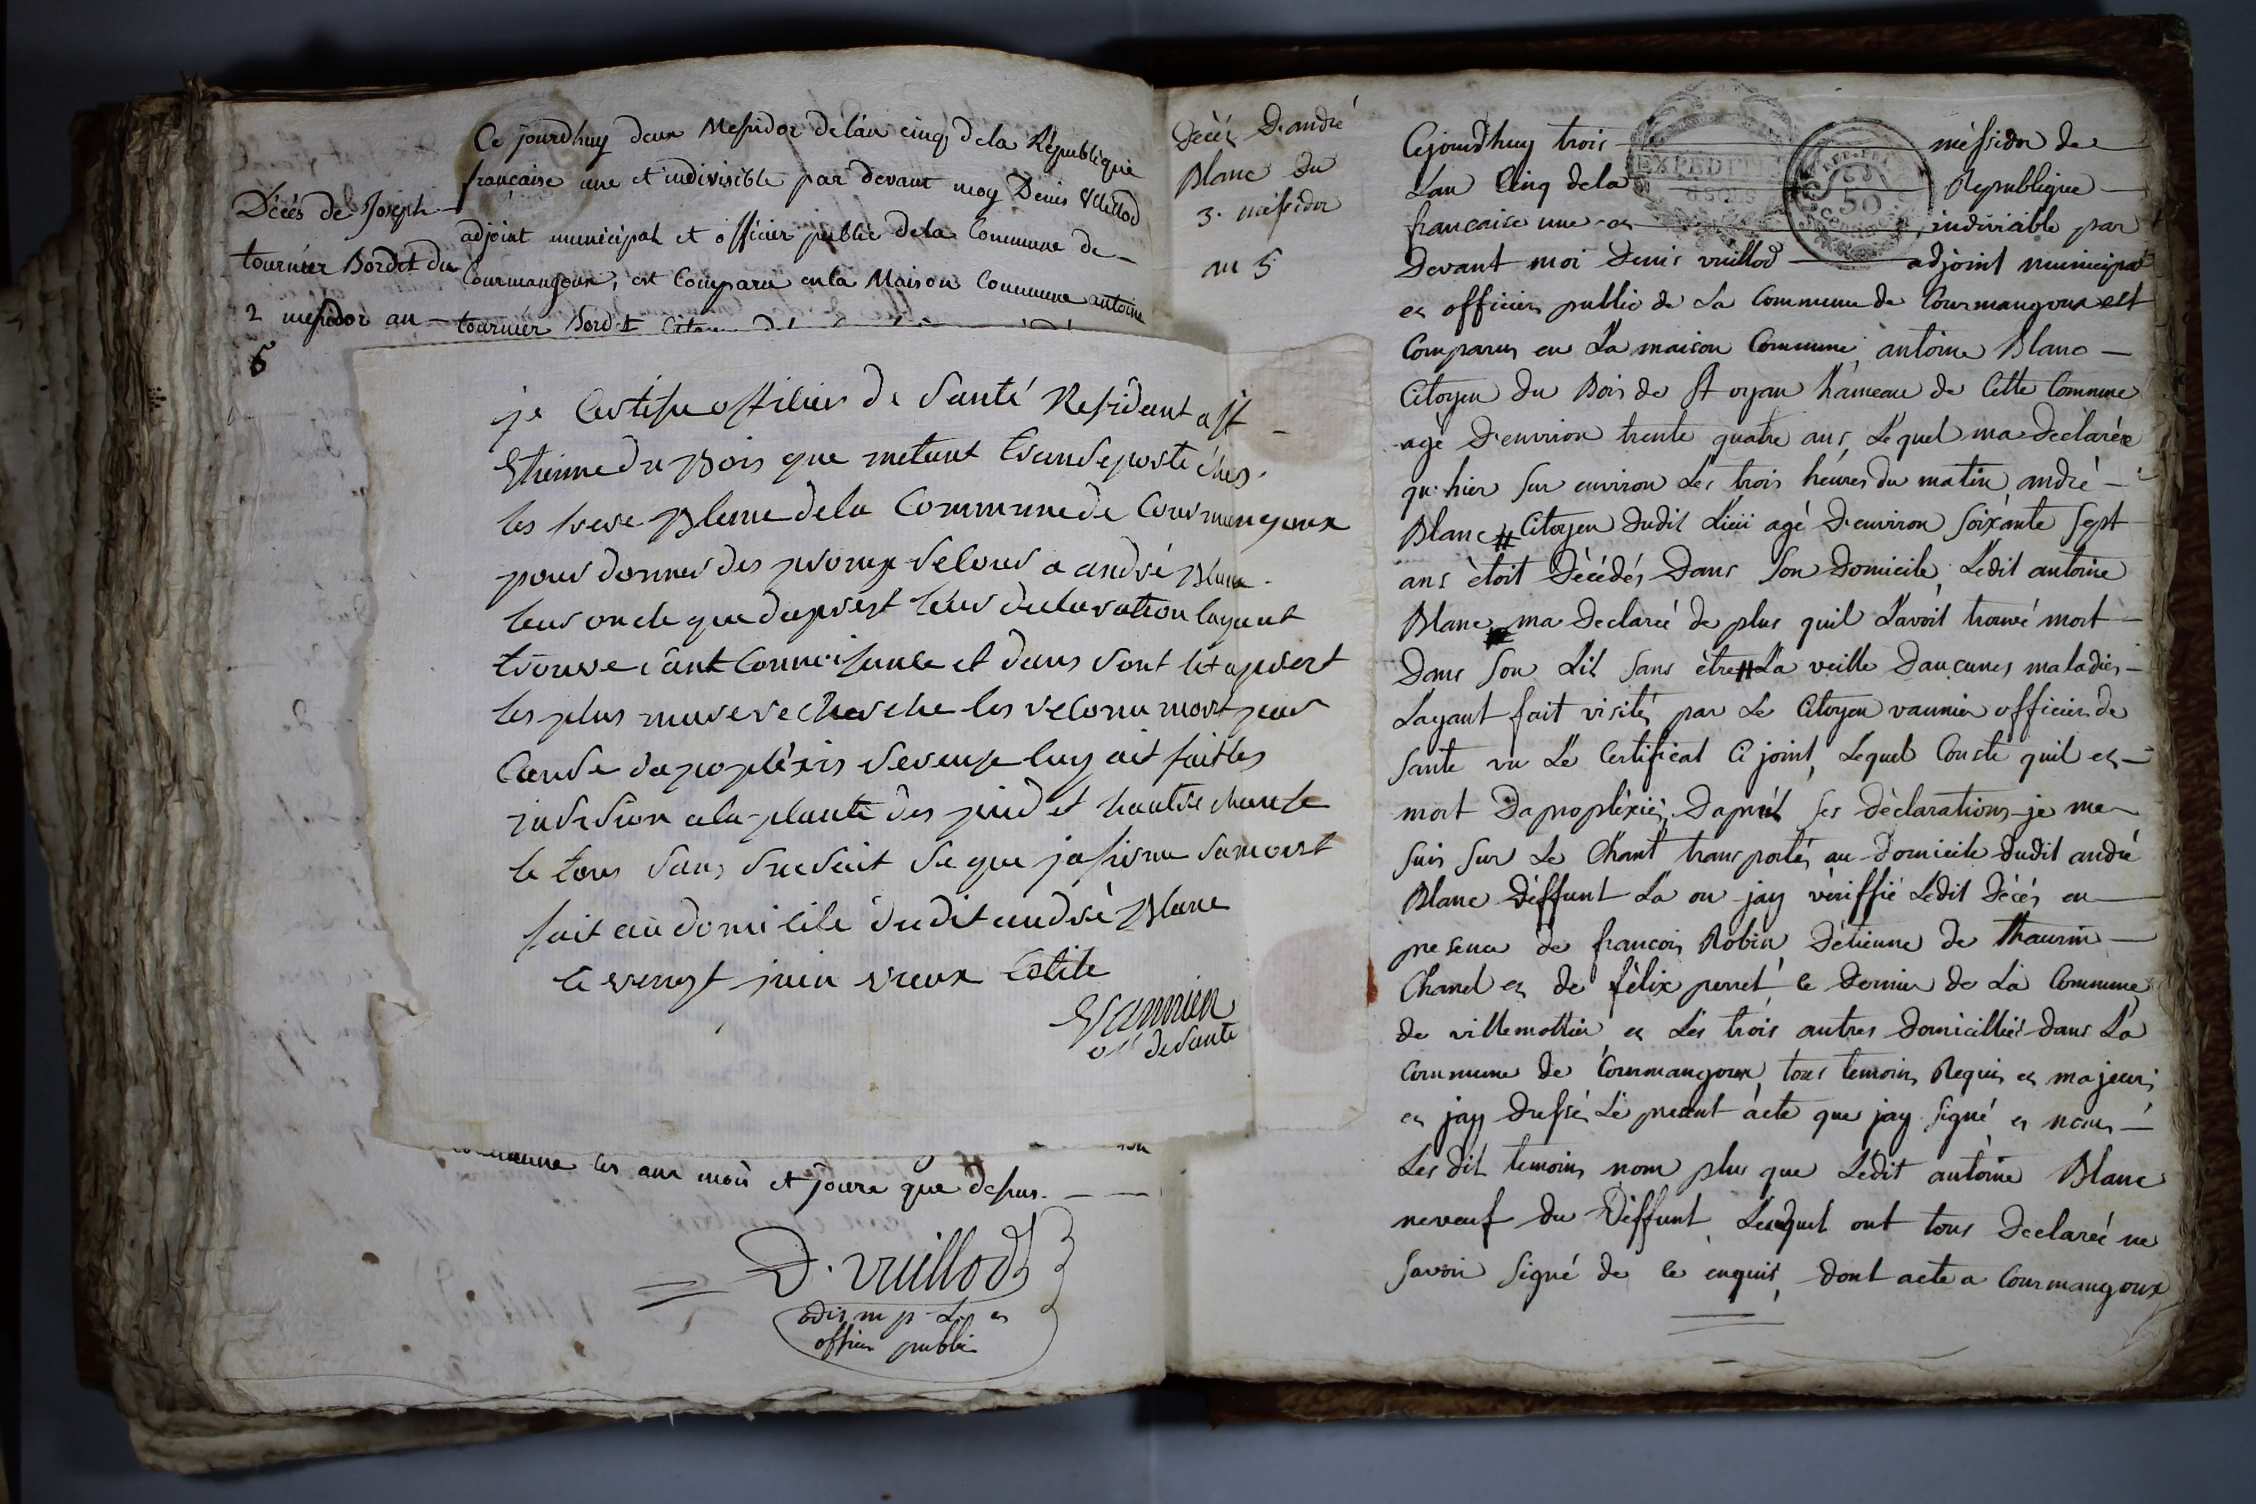 Ce jourdhuy deux Messidor de lan cinq de la Republique
française une et indivisible par devant moy Denis Vuillod
adjoint municipal et officier public de la Commune de
Courmangoux, est Comparu en la Maison Commune antoine
tournier Bordet
Décès de Joseph
tournier Bordet du
2 messidor an
5
je Certifie officier de Santé Residant a St
Etienne du Bois que metant transeporte ches
les frere Blanc de la Commune de Courmangoux
pour donner des promp secours a andré Blanc
leur oncle que daprest leur declaration layant
trouve sant connoisance et dans sont lit apprest
les plus mure recherche les reconu mort par
Cause dapopléxis luy ait fait les
insision a la plante des pied et
le tous sans sucsait se que jafirme
fait au domicile dudit andré Blanc
le vengt juin vieux Estile
Vannier
off de Santé
commune les ans mois et jours que desus.
D. vuillod
adj. m p. L. et
officier public
Décès D'andré
Blanc Du
3. messidor
an 5
Cejourdhuy trois méssidor de
L'an Cinq de la Republique
EXPEDIT
50
francaise une et indivisible par
Devant moi Denis vuillod adjoint municipal
et officier public de La Commune de Courmangoux est
Comparus en La maison Commune antoine Blanc
Citoyen du Bois de St oyan hameau de Cette Commune
agé D'environ trente quatre ans, Lequel ma Declarée
qu'hier sur environ Les trois héures du matin andré
Blanc # Citoyen dudit Lieu agé D'environ soixante sept
ans étoit Décédés Dans son Domicile, Ledit antoine
Blanc ma Declarée de plus quil L'avoit trouvé mort
Dans son Lit sans être # La veille Daucunes maladies
Layant fait visités par Le Citoyen vannier officier de
santé vu Le Certificat Ci joint, Lequel Conste quil est
mort Dapopléxie, Daprést ses déclarations je me
suis sur Le Chant transportés au domicile dudit andré
Blanc Déffunt La ou jay vériffié Ledit Décés en
presence de francois Robin Detienne de Thaurin
Chanel et de félix perret ce Dernier de La Commune
de villemottier et Les trois autres Domicilliés dans La
Commune de Courmangoux, tous temoins Requis et majeurs
et jay dressé Le present acte que jay signé et nons
Les dit temoins nom plus que Ledit antoine Blanc
neveuf du Déffunt Lesquel ont tous Declarée ne
savoir signé de ce enquis, dont acte a Courmangoux